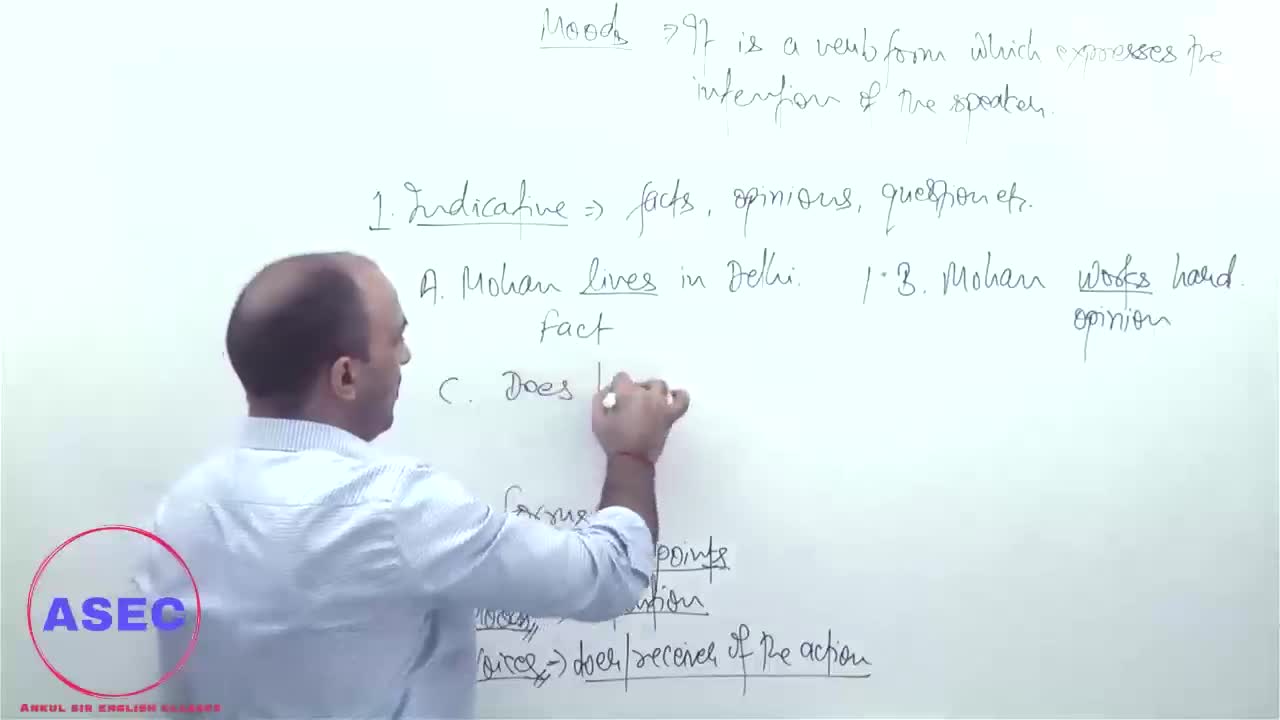 Moods ⇒ It is a verb form which expresses the
intention of the speaker.
1. Indicative ⇒ facts, opinions, question etc.
A. Mohan lives in Delhi. 1. B. Mohan works hard.
Fact opinion
C. Does
forms
points
Moods
Voices → doer/receiver of the action
ASEC
ANKUL SIR ENGLISH CLASSES